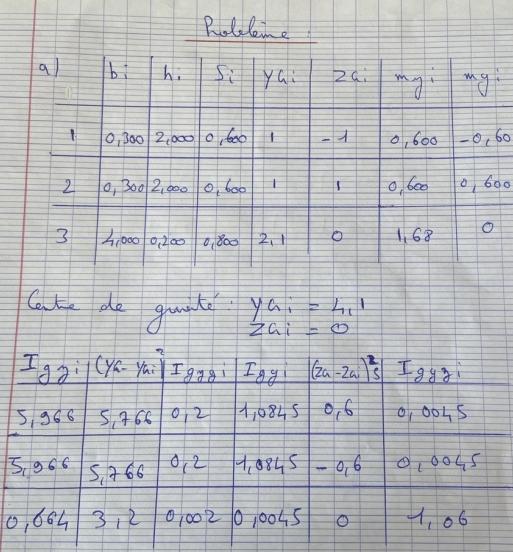 Problème :
a) bi hi Si yGi zGi myi myi
1 0,300 2,000 0,600 1 -1 0,600 -0,60
2 0,300 2,000 0,600 1 1 0,600 0,600
3 4,000 0,200 0,800 2,1 0 1,68 0
Centre de gravité : yGi = 4,1
zGi = 0
Igzi (yG-yGi)² Igzgi Igyi (zG-zGi)²S Igyzi
5,966 5,766 0,2 1,0845 0,6 0,0045
5,966 5,766 0,2 1,0845 -0,6 0,0045
0,664 3,2 0,002 0,0045 0 1,06